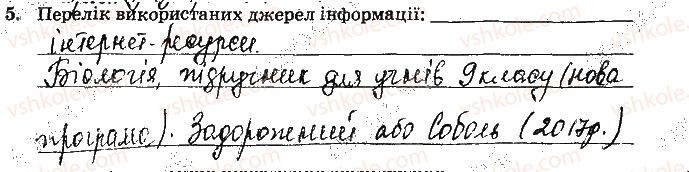 5. Перелік використаних джерел інформації:
інтернет-ресурси.
Біологія, підручник для учнів 9 класу (нова
програма). Задорожний або Соболь (2017р.)